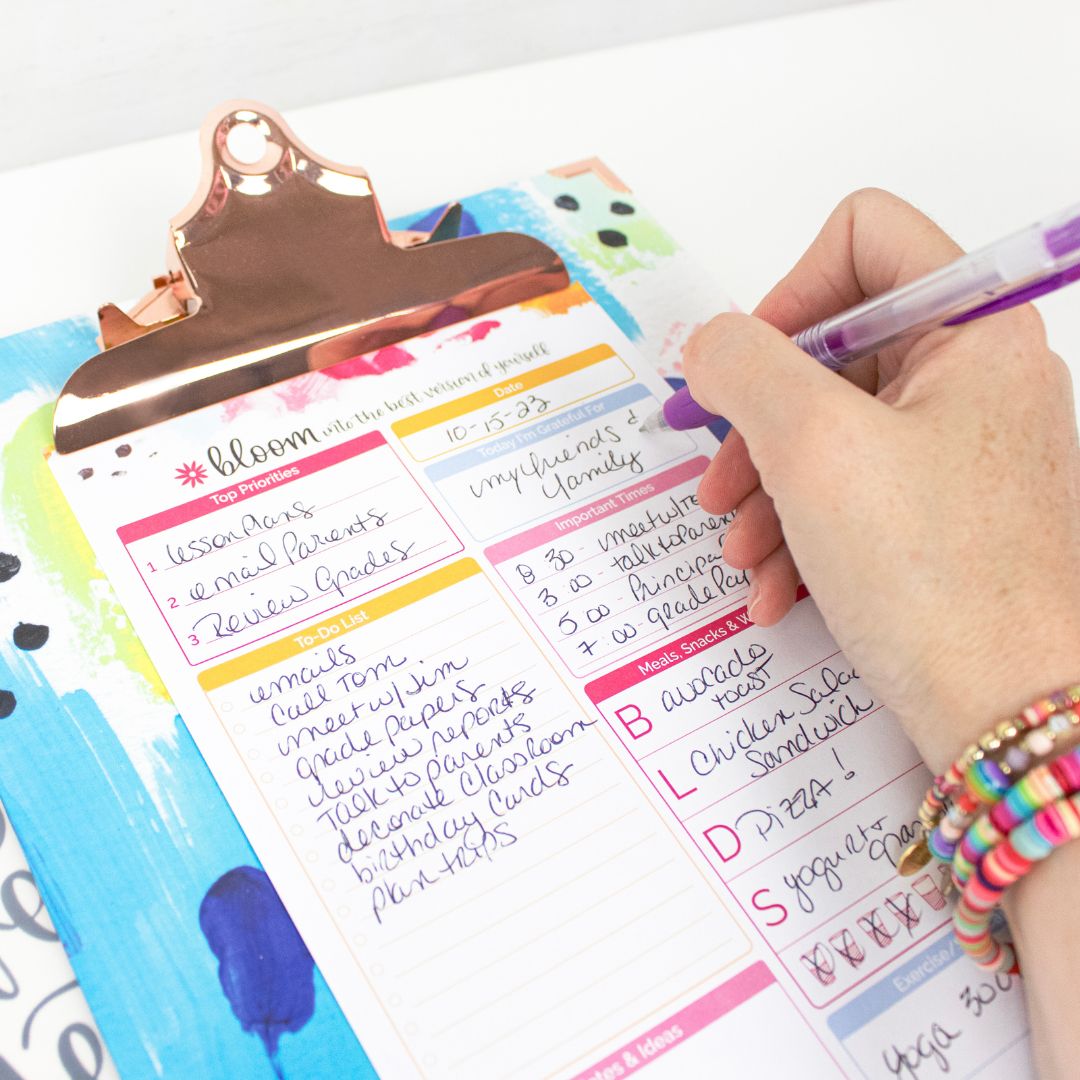 bloom into the best version of yourself
Top Priorities
1 lesson plans
2 email Parents
3 Review Grades
To-Do List
emails
Call Tom
meet w/ Jim
grade papers
review reports
Talk to parents
decorate Classroom
birthday cards
plan trips
Date
10-15-23
Today I'm Grateful For
my friends &
family
Important Times
8 30 - meet w/
3:00 - talk to Parent
5:00 - Principa
7:00 - grade Pa
Meals, Snacks & W
B avocado
toast
L Chicken Sala
Sandwich
D Pizza!
S yogurt
Exercise/
yoga 30
tes & Ideas